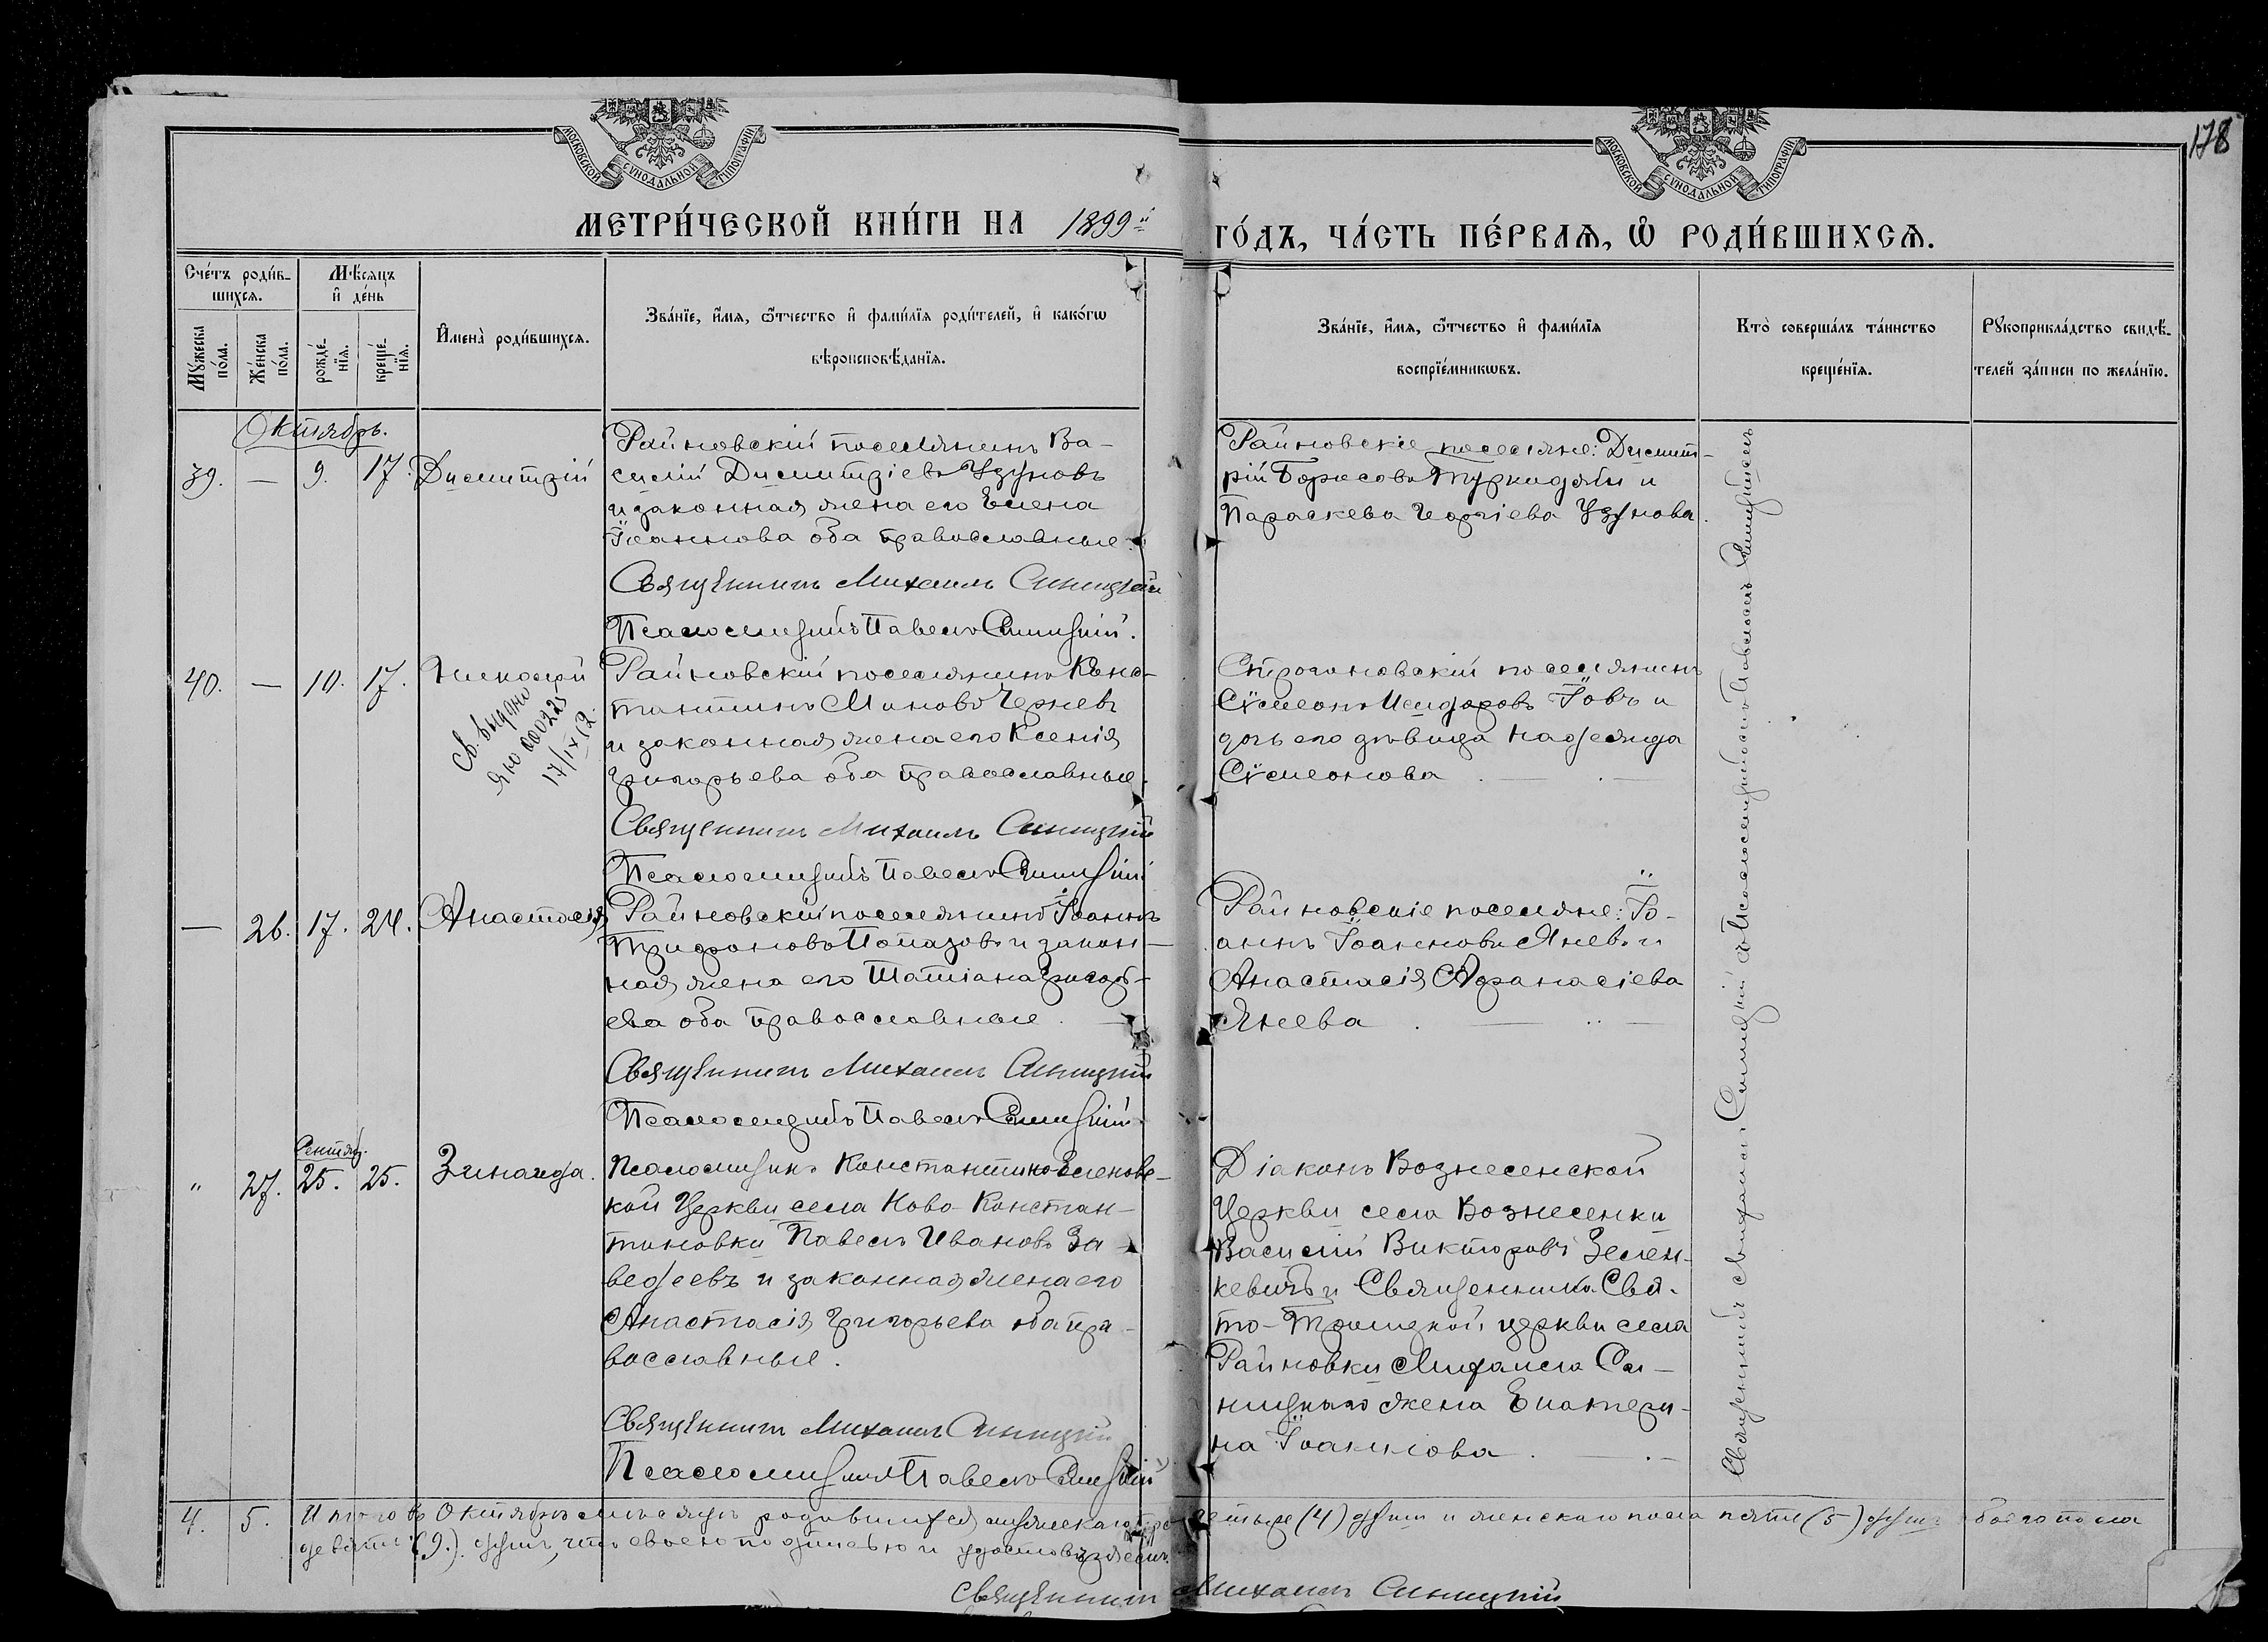 178
МОСКОВСКОЙ СУНОДАЛЬНОЙ ТИПОГРАФІИ
МОСКОВСКОЙ СУНОДАЛЬНОЙ ТИПОГРАФІИ
МЕТРИ́ЧЕСКОЙ КНИ́ГИ НА 1899й ГО́ДЪ, ЧА́СТЬ ПЕ́РВАѦ, Ѡ҆ РОДИ́ВШИХСѦ.
Сче́тъ роди́в-
шихсѧ.
Мꙋ́жеска по́ла.
Же́нска по́ла.
Мѣ́сѧцъ
и҆ де́нь
рожде́-
нїѧ.
креще́-
нїѧ.
И҆мена̀ роди́вшихсѧ.
Зва́нїе, и҆́мѧ, ѻ҆́тчество и҆ фами́лїѧ роди́телей, и҆ како́гѡ
вѣроисповѣ́данїѧ.
Зва́нїе, и҆́мѧ, ѻ҆́тчество и҆ фами́лїѧ
воспрїе́мникѡвъ.
Кто̀ соверша́лъ та́инство
креще́нїѧ.
Рꙋкоприкла́дство свидѣ́-
телей за́писи по жела́нїю.
Октябрь.
39. — 9. 17. Димитрій
Райновскій поселянинъ Ва-
силій Димитріевъ Узуновъ
и законная жена его Елена
Іоаннова оба православные.
Священникъ Михаилъ Синицкій
Псаломщикъ Павелъ Синицкій.
Райновскіе поселяне: Димит-
рій Борисовъ Туркиджи и
Параскева Георгіева Узунова.
40. — 10. 17. Николай
Св. выдано
17/IX 12.
Райновскій поселянинъ Конс-
тантинъ Миновъ Черневъ
и законная жена его Ксенія
Григорьева оба православные.
Священникъ Михаилъ Синицкій
Псаломщикъ Павелъ Синицкій
Строгоновскій поселянинъ
Сѵмеонъ Исидоровъ Іовъ и
дочь его дѣвица Надежда
Сѵмеонова
— 26. 17. 24. Анастасія
Райновскій поселянинъ Іоаннъ
Трифоновъ Попазовъ и закон-
ная жена его Татіана Григорь-
ева оба православные.
Священникъ Михаилъ Синицкій
Псаломщикъ Павелъ Синицкій.
Райновскіе поселяне: Іо-
аннъ Іоанновъ Яневъ и
Анастасія Афанасіева
Янева
Сентяб.
" 27. 25. 25. Зинаида.
Псаломщикъ Константино-Еленовс-
кой Церкви села Ново-Констан-
тиновки Павелъ Ивановъ За-
ведеевъ и законная жена его
Анастасія Григорьева оба пра-
вославные.
Священникъ Михаилъ Синицкій
Псаломщикъ Павелъ Синицкій
Діаконъ Вознесенской
Церкви села Вознесенки
Василій Викторовъ Зелен-
кевичъ и Священника Свя-
то-Троицкой церкви села
Райновки Михаила Си-
ницкаго жена Екатери-
на Іоаннова
Священникъ Михаилъ Синицкій съ Псаломщикомъ Павломъ Синицкимъ
4. 5. Итого въ Октябрѣ мѣсяцѣ родившихся мужескаго пола четыре (4) душъ и женскаго пола пять (5) душъ обоего пола
девять (9.) душъ, что своею подписью и удостовѣряемъ.
Священникъ Михаилъ Синицкій